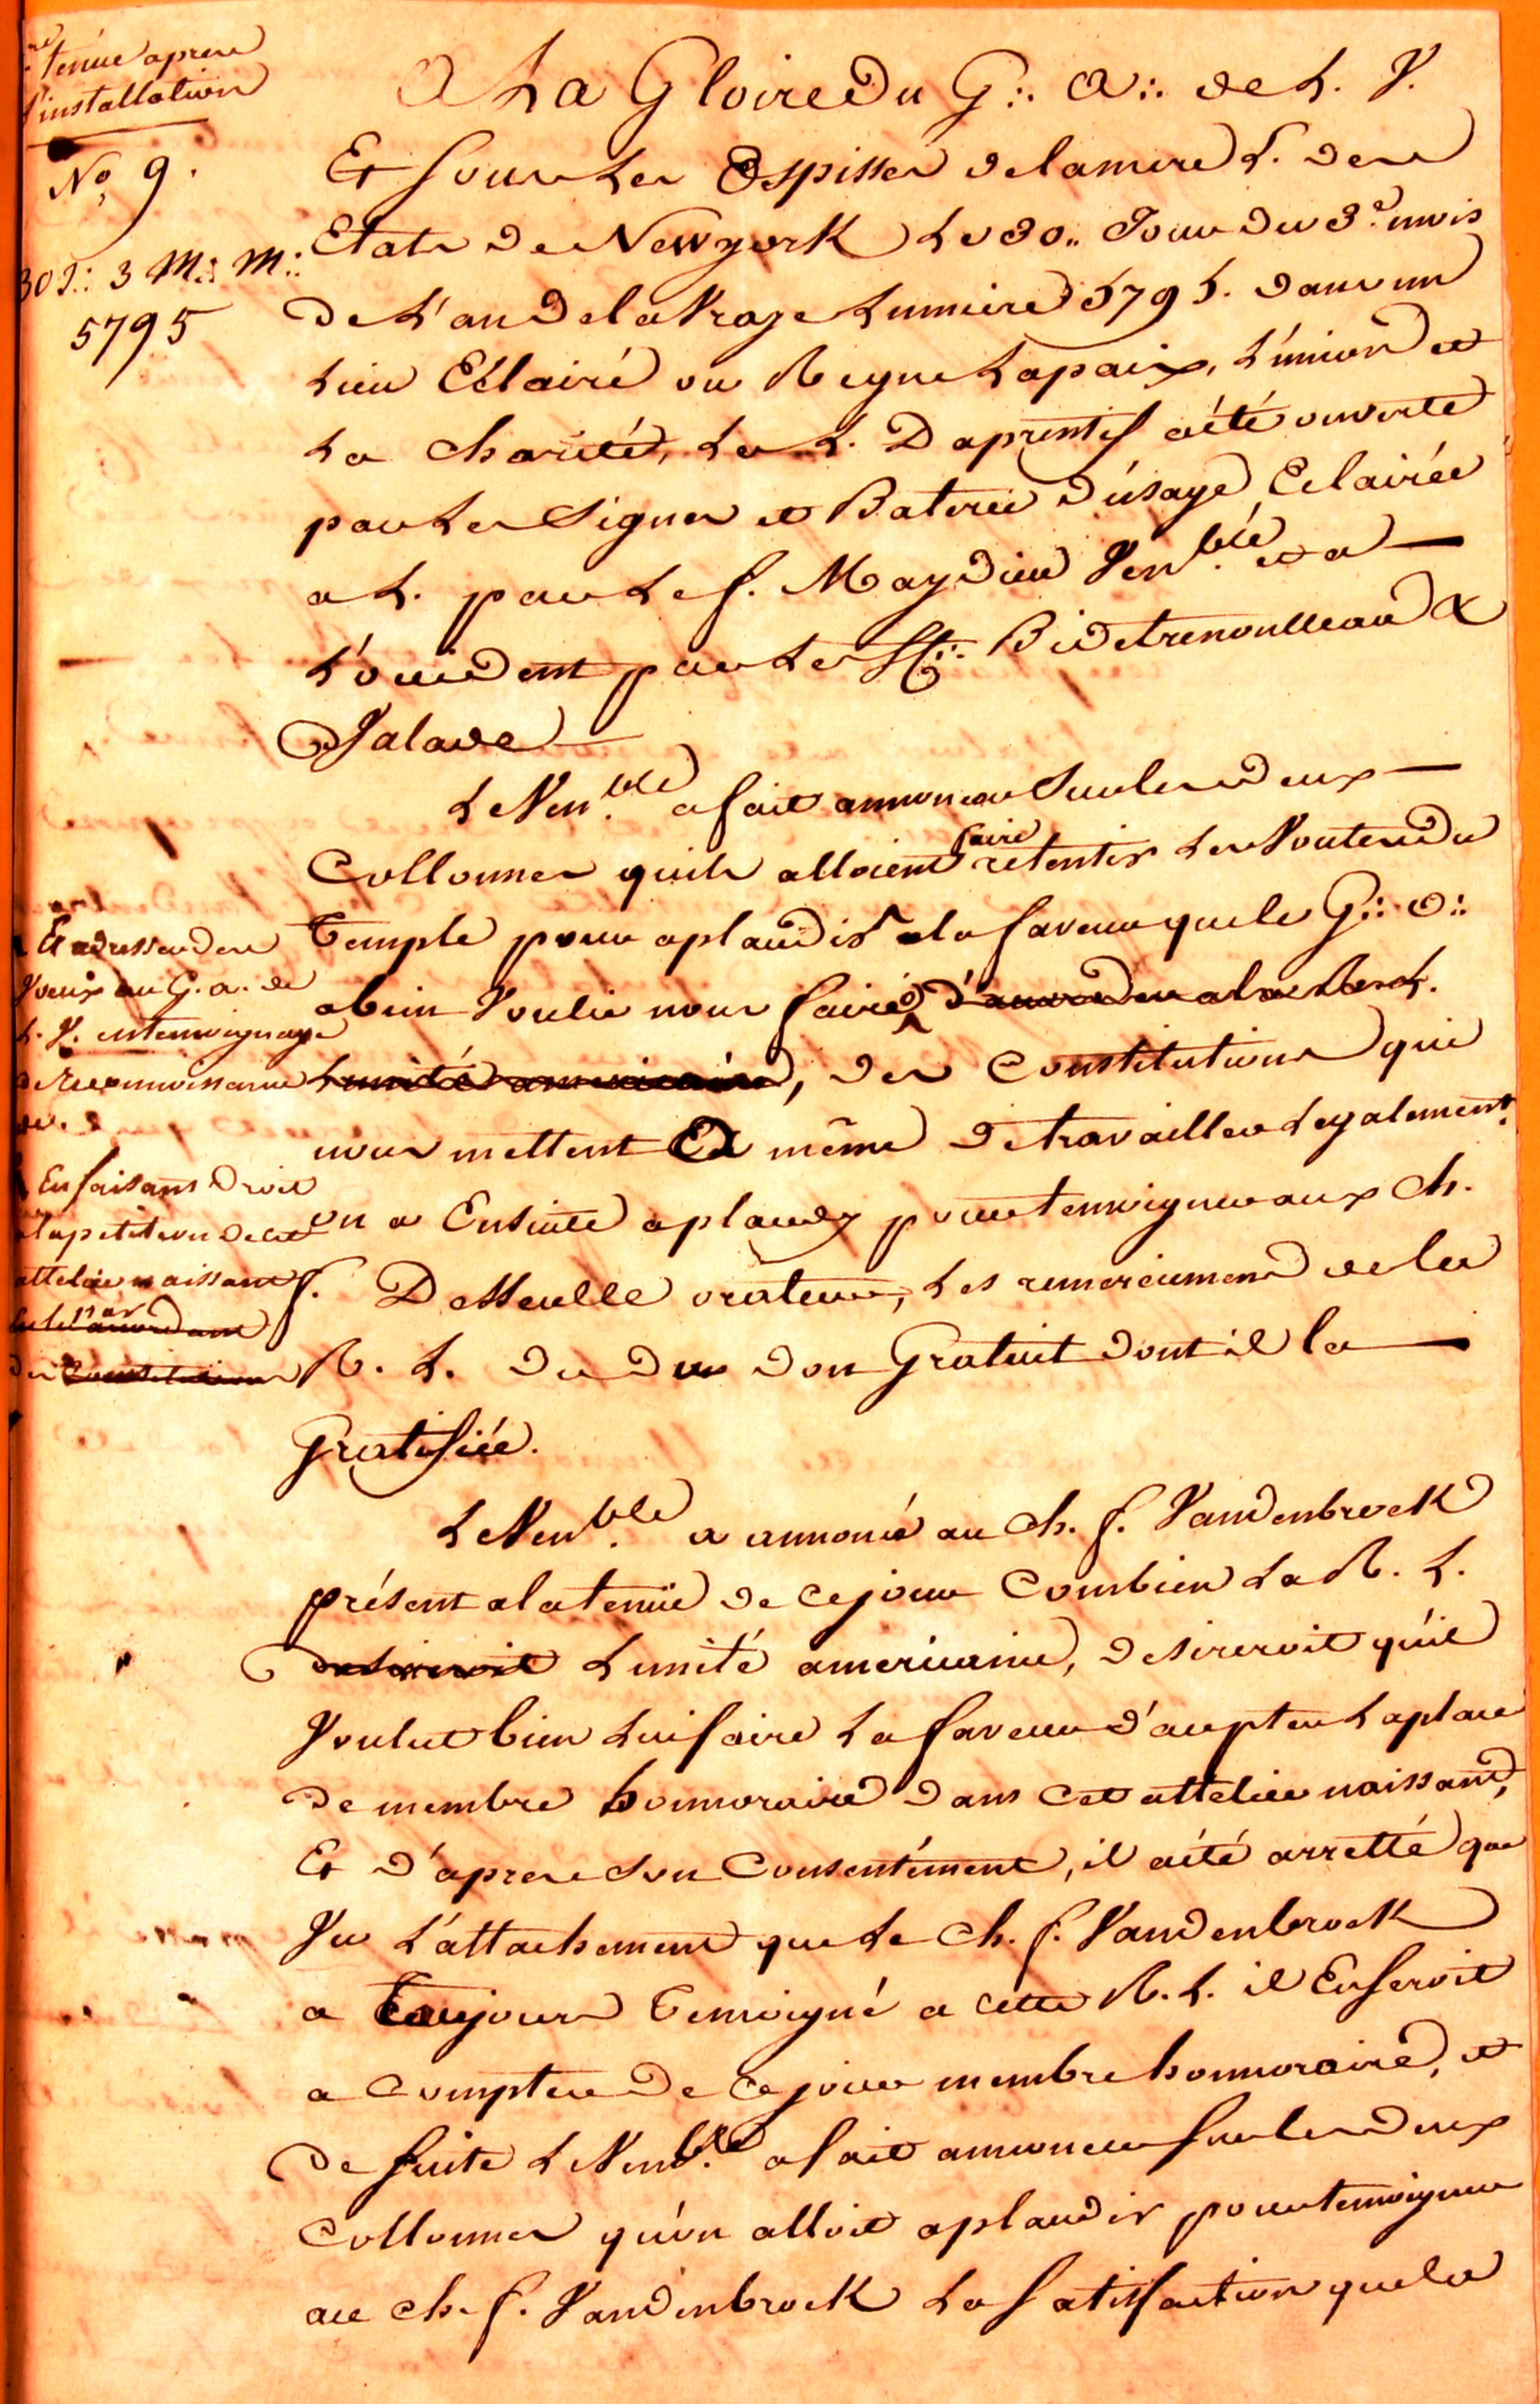 tenüe apres
l'installation
No. 9.
30 J∴ 3 M∴ M∴
5795
A La Gloire Du G∴ A∴ de L. V.
Et sous Les Auspisses de la mere L. des
Etats de Newyork Le 30.. Jour du 3e. mois
De L'an De la Vraye Lumiere 5795. dans un
Lieu Eclairé ou Regne La paix, L'union et
La charité, La L. D'aprentif a été ouverte
par Les Signes et Baterie D'usage, Eclairée
a L. par Le f. Maydieu Ven.ble et a
L'occident par Les ff∴ Bidetrenoulleau &
Dalave
Le Ven.ble a fait annoncer Sur les deux
Collonnes quils alloient faire retentir Les Voutes Du
Temple pour aplaudir a la faveur que le G∴ A∴
a bien Voulu nous faire, d'accorder a la R. L.
L'unité americaine, des Constitutions qui
nous mettent a même De travailler Legalement.
on a Ensuite aplaudy pour temoigner aux ch.
f. Dessculle orateur, Les remerciemens de la
R. L. du don Gratuit dont il la
Gratifiée.
Et adresser des
Voeux au G. a. de
L. V. en temoignage
de reconnoissance
de.
En faisans Droit
a la petition de cet
attelier naissant
par
accordant
des Constitutions
Le Ven.ble a annoncé au Ch. f. Vandenbroek
présent a la tenüe de ce jour Combien La R. L.
desireroit L'unité americaine, desireroit qu'il
Voulut bien Lui faire La faveur d'accepter La place
De membre honnoraire dans cet attelier naissant,
Et d'apres son Consentement, il a été arretté que
Vu L'attachement que Le Ch. f. Vandenbroek
a Toujours Temoigné a cette R. L. il En seroit
a Compter De ce jour membre honnoraire, et
De suite Le Ven.ble a fait annoncer sur les deux
Collonnes qu'on alloit aplaudir pour temoigner
au ch. f. Vandenbroek La satisfaction que la